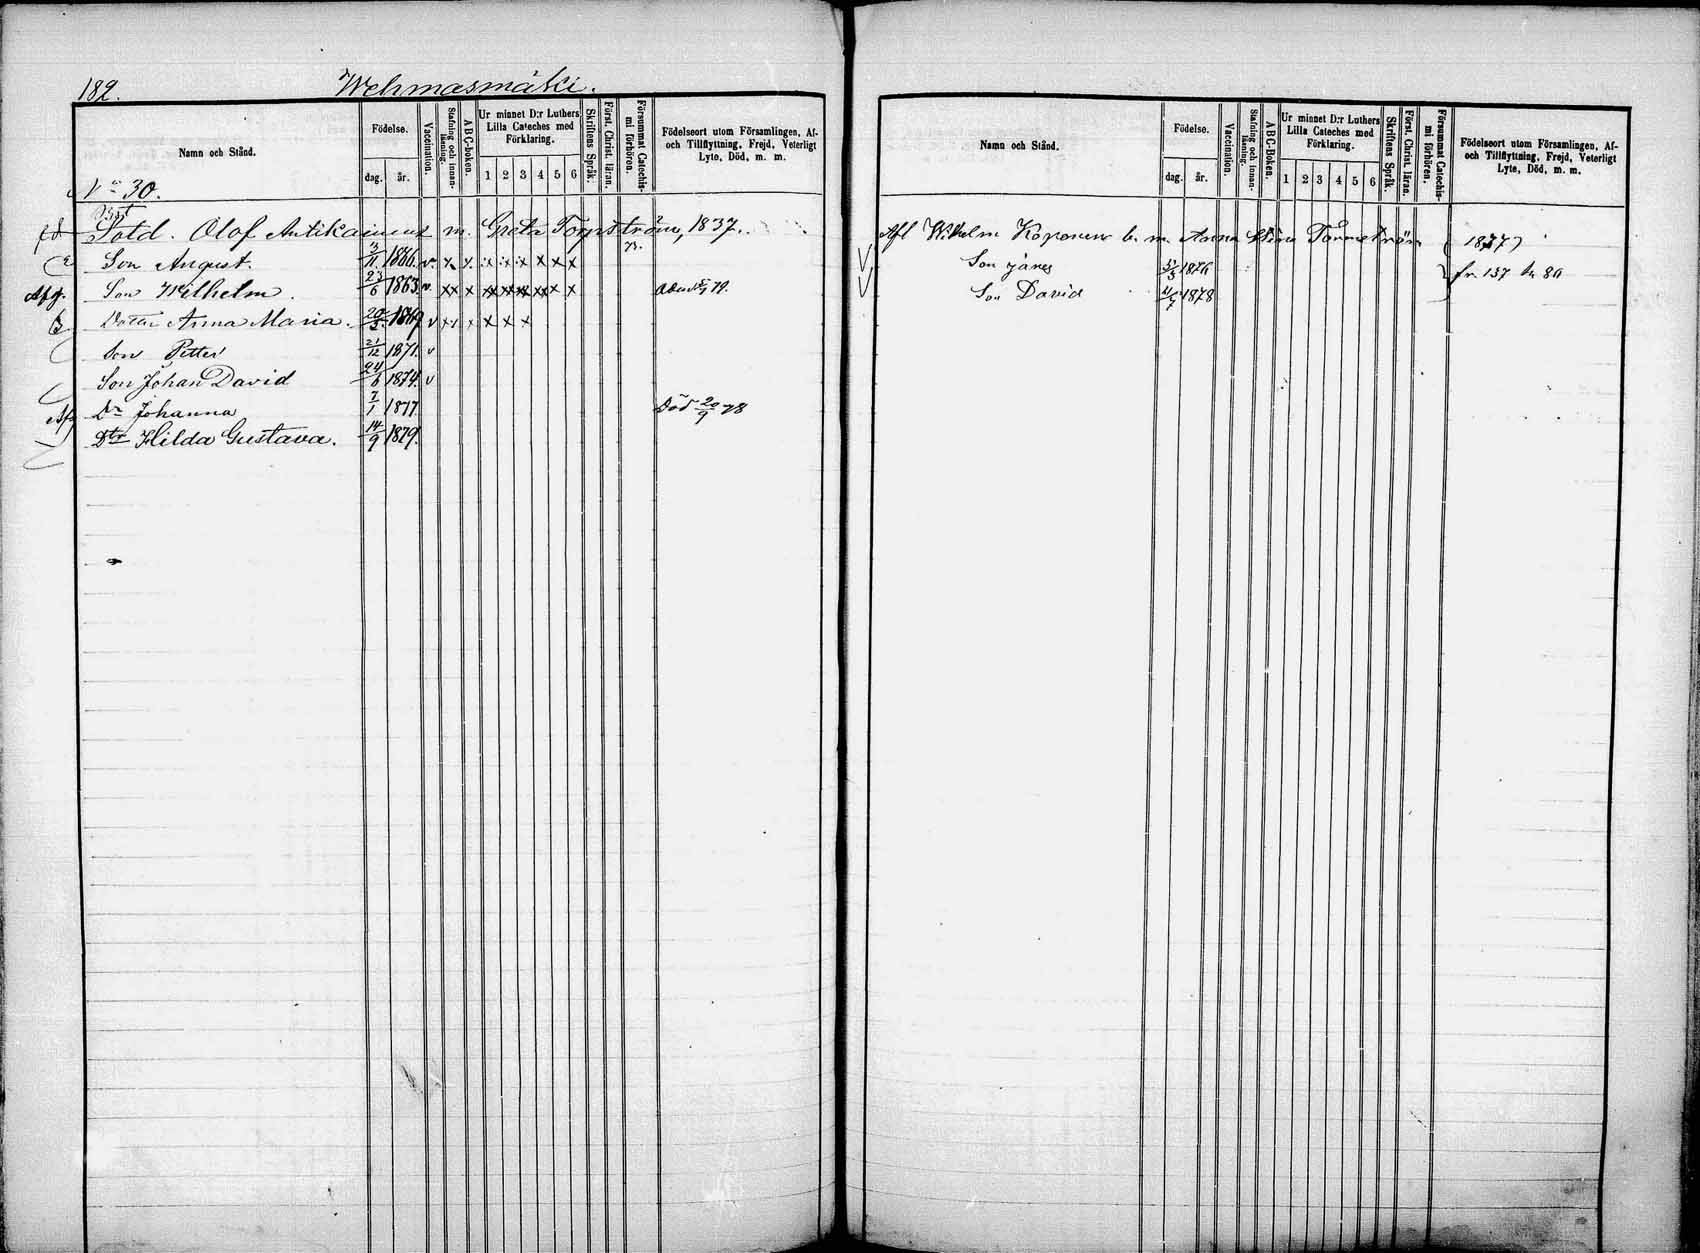 182. Wehmasmäki.
Namn och Stånd.
Födelse.
dag. år.
Vaccination.
Stafning och innanläsning.
ABC-boken.
Ur minnet D:r Luthers Lilla Cateches med Förklaring.
1 2 3 4 5 6
Skriftens Språk.
Först. Christ. läran.
Försummat Catechismi förhören.
Födelseort utom Församlingen, Af- och Tillflyttning, Frejd, Veterligt Lyte, Död, m. m.
No 30.
Sotd. Olof Antikainens m. Greta Torpström, 1837.
Son August. 3/11 1866. v. x x. x x x x x x 73.
Afg. Son Wilhelm. 23/6 1863. v. xx x xx xx xx xx x x 79.
Dotter Anna Maria. 20/2 1869 v x x x x x x
Son Petter 21/12 1871. v
Son Johan David 24/6 1874. v
Afg Dr Johanna 7/1 1877 Död 20/9 78
Dtr Hilda Gustava. 14/9 1879.
Namn och Stånd.
Födelse.
dag. år.
Vaccination.
Stafning och innanläsning.
ABC-Boken.
Ur minnet D:r Luthers Lilla Cateches med Förklaring.
1 2 3 4 5 6
Skriftens Språk.
Först. Christ. läran.
Försummat Catechismi förhören.
Födelseort utom Församlingen, Af- och Tillflyttning, Frejd, Veterligt Lyte, Död, m. m.
Afl Wilhelm Koponen b. m. Anna Stina (1877)
Son Janes 5/3 1876 fr. 137 h 80
Son David 1878